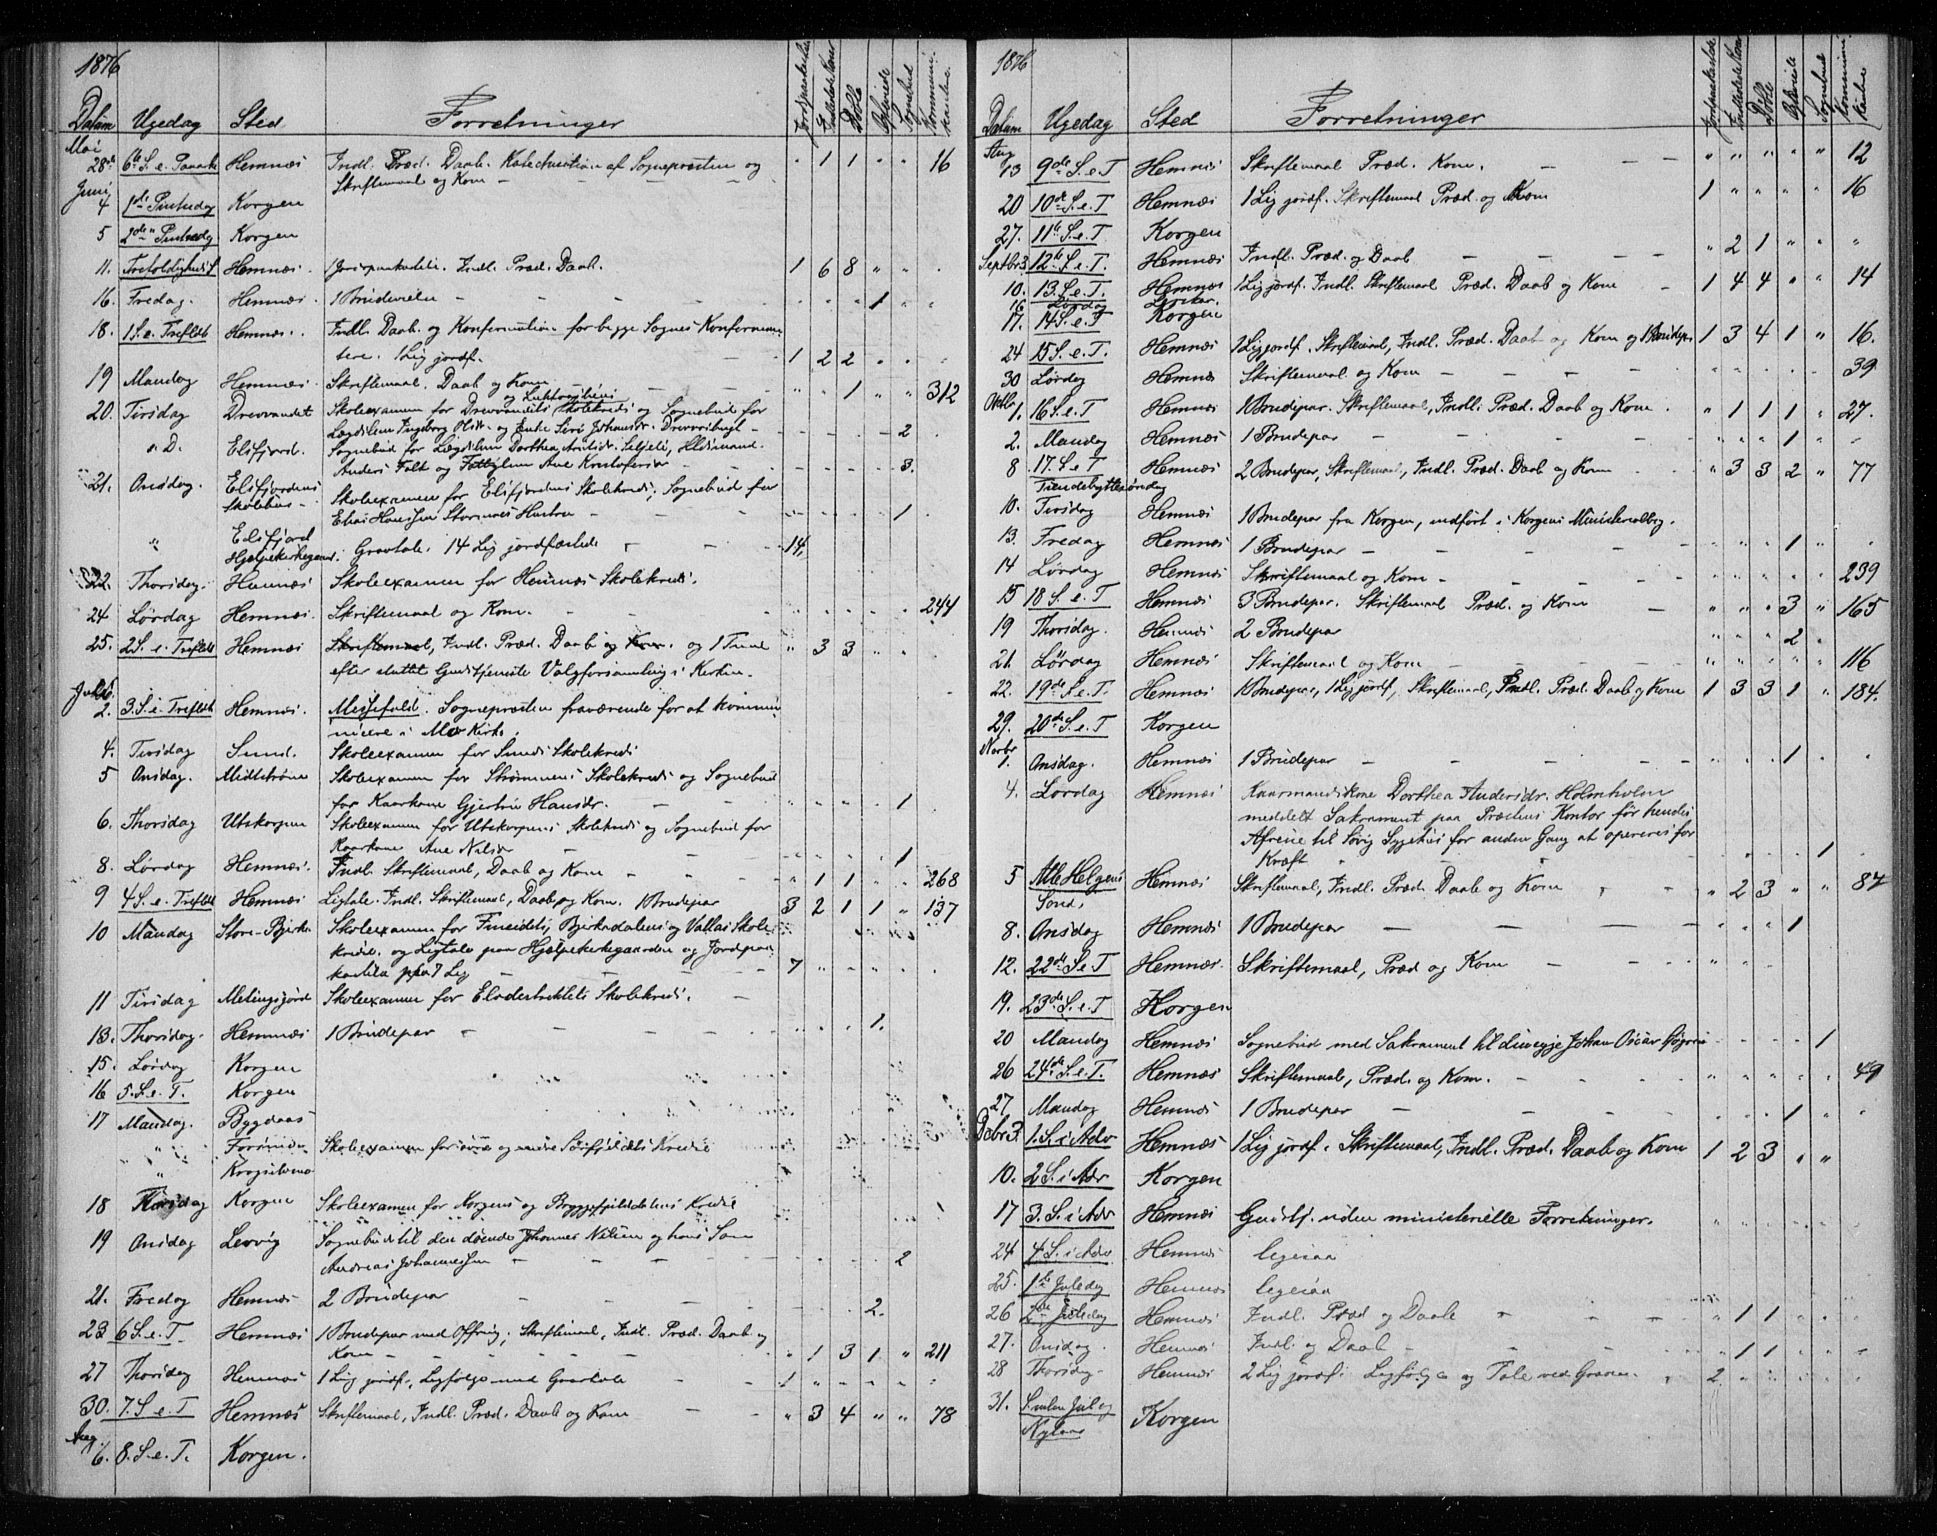 1876
Datum Ugedag Sted Forretninger Jordpaakastelse Indledede Koner Døbte Ægteviede Sognebud Kommunikanter
Mai
28de 6te S. e. Paaske Hemnæs Indl. Præd. Daab. Katechisation af Sognepræsten og " 1 1 " " 16
Skriftemaal og Kom
Juni
4 1ste Pintsedag Korgen
5 2den Pintsedag Korgen
11. Trefoldighedsf. Hemnæs. 1 Jordpaakastelse. Indl. Præd. Daab. 1 6 8 " "
16. Fredag. Hemnæs. 1 Brudevielse 1
18. 1 S. e. Trefldt Hemnæs. Indl. Daab. og Konfirmation for begge Sognes Konfirman-
tere. 1 Lig jordf. 1 2 2
19 Mandag Hemnæs. Skriftemaal. Daab og Kom 1 312
20. Tirsdag Drevvandet Skoleexamen for Drevvandets Skolekreds og Sognebud for
Lægdslem Ingeborg Olsdr. og Enke Siri Johansdr. 2
" D. Elsfjord. Sognebud for Lægdslem Dorthea
Anders Falk og Ane Kristofersdr 3.
21. Onsdag. Elsfjordens Skoleexamen for Elsfjordens Skolekreds; Sognebud for
Skolehus
Elias Hanssen Stornæs Hustru 1
" Elsfjord
Hjælpekirkegaard. Gravtale. 14 Lig jordfæstede 14
22. Thorsdag. Hemnæs Skoleexamen for Hemnæs Skolekreds.
24 Lørdag Hemnæs. Skriftemaal og Kom. 244
25. 2 S. e. Trefldt Hemnæs Skriftemaal, Indl. Præd. Daab og Kom. og 1 Time " 3 3
efter sluttet Gudstjeneste Valgforsamling i Kirken.
Juli
2. 3. S. e. Trefldt Hemnæs. Messefald. Sognepræsten fraværende for at kommu-
nicere i Mo Kirke.
4. Tirsdag Sund. Skoleexamen for Sunds Skolekreds
5 Onsdag. Midtstrøm Skoleexamen for Strømmens Skolekreds og Sognebud
for Kaarkone Gjertrue Hansdr. 1
6. Thorsdag Utskorpen Skoleexamen for Utskorpens Skolekreds og Sognebud for
Kaarkone Ane Nilsdr 1
8. Lørdag Hemnæs. Indl. Skriftemaal, Daab og Kom 1 1 268
9 4 S. e. Trefldt Hemnæs Ligtale. Indl. Skriftemaal, Daab og Kom. 1 Brudepar 3 2 1 1 " 137
10 Mandag Store-Bjerka Skoleexamen for Fineidets, Bjerkadalens og Vallas Skole-
kreds. og Ligtale paa Hjælpekirkegaarden og Jordpaa-
kastelse paa 7 Lig 7
11 Tirsdag Skoleexamen for Skolekreds.
13. Thorsdag. Hemnæs 1 Brudepar 1.
15. Lørdag Korgen
16 5. S. e. T. Korgen
17 Mandag. Bygdaas
" Skoleexamen for øvre og nedre Kredse
"
18 Tirsdag Korgen Skoleexamen for Korgens og Kredse
19 Onsdag Leirvig Sognebud til den døende Johannes Nilsen og hans Søn
Andreas Johannessen 2
21. Fredag Hemnæs 2 Brudepar 2.
23 6 S. e. T Hemnæs 1 Brudepar med Offring; Skriftemaal, Indl. Præd. Daab og
Kom " 1 3 1 " 211
27 Thorsdag Hemnæs 1 Lig jordf., Ligfølge med Gravtale 1
30. 7. S. e. T Hemnæs Skriftemaal, Indl. Præd. Daab og Kom " 3 4 " " 78
Aug.
6. 8. S. e. T. Korgen.
1876
Datum Ugedag Sted Forretninger Jordpaakastelse Indledede Koner Døbte Ægteviede Sognebud Kommunikanter
Aug
13 9de S. e. T Hemnæs Skriftemaal Præd. Kom. " " " " " 12
20 10de S. e. T Hemnæs 1 Lig jordf. Skriftemaal Præd. og Kom 1 " " " " 16
27. 11te S. e. T. Korgen
Septbr. 3. 12te S. e. T. Hemnæs Indl. Præd. og Daab " 2 1 " " "
10. 13. S. e. T. Hemnæs 1 Lig jordf. Indl. Skriftemaal Præd. Daab og Kom 1 4 4 " " 14
16 Lørdag
17. 14 S. e. T Korgen
24 15 S. e. T. Hemnæs 1 Lig jordf. Skriftemaal, Indl. Præd. Daab og Kom og 1 Brudepar 1 3 4 1 " 16.
30 Lørdag Hemnæs Skriftemaal og Kom 39
Octbr
1. 16 S. e. T Hemnæs 1 Brudepar. Skriftemaal, Indl. Præd. Daab og Kom. " 1 1 1 " 27.
2. Mandag Hemnæs 1 Brudepar 1
8 17. S. e. T Hemnæs 2 Brudepar, Skriftemaal, Indl. Præd. Daab og Kom " 3 3 2 " 77
Tiendebyttesøndag
10. Tirsdag Hemnæs 1 Brudepar fra Korgen, indført i Korgens Ministerialbog.
13. Fredag Hemnæs 1 Brudepar 1
14 Lørdag Hemnæs Skriftemaal og Kom 239
15 18 S. e. T Hemnæs 3 Brudepar. Skriftemaal Præd. og Kom " " " 3 " 165
19 Thorsdag. Hemnæs 2 Brudepar 2
21. Lørdag Hemnæs Skriftemaal og Kom 116
22. 19de S. e. T. Hemnæs 1 Brudepar, 1 Lig jordf, Skriftemaal, Indl. Præd. Daab og Kom 1 3 3 1 " 184.
29. 20de S. e. T Korgen
Novbr
1. Onsdag. Hemnæs 1 Brudepar 1
4. Lørdag Hemnæs Kaarmandskone Dorthea Andersdr. Holmholm
meddelt Sakrament paa Præstens Kontor før hendes
Afreise til Sygehus for anden Gang at opereres for
Kræft 1
5 Alle Helgens Hemnæs Skriftemaal, Indl. Præd. Daab og Kom " 2 3 " " 87
Sønd.
8. Onsdag Hemnæs 1 Brudepar 1
12. 22de S. e. T Hemnæs. Skriftemaal, Præd og Kom
19. 23de S. e. T Korgen
20 Mandag Hemnæs Sognebud med Sakrament til Johan Oscar 1
26 24de S. e. T. Hemnæs Skriftemaal, Præd. og Kom. 49
27 Mandag Hemnæs 1 Brudepar 1
Dcbr 3. 1. S. i Adv Hemnæs 1 Lig jordf. Skriftemaal, Indl. Præd. Daab og Kom 1 2 3 " "
10. 2 S. i Adv Korgen
17 3. S. i Adv Hemnæs Gudstj. uden ministerielle Forretninger.
24 4 S. i Adv Hemnæs ligesaa
25. 1ste Juledag Hemnæs ligesaa
26 2den Juledag Hemnæs Indl. Præd og Daab 1 1
27. Onsdag. Hemnæs Indl. og Daab 1 1
28 Thorsdag. Hemnæs 2 Lig jordf. Ligfølge og Tale ved Graven. 2
31. S. mellem Jul og Korgen
Nytaar